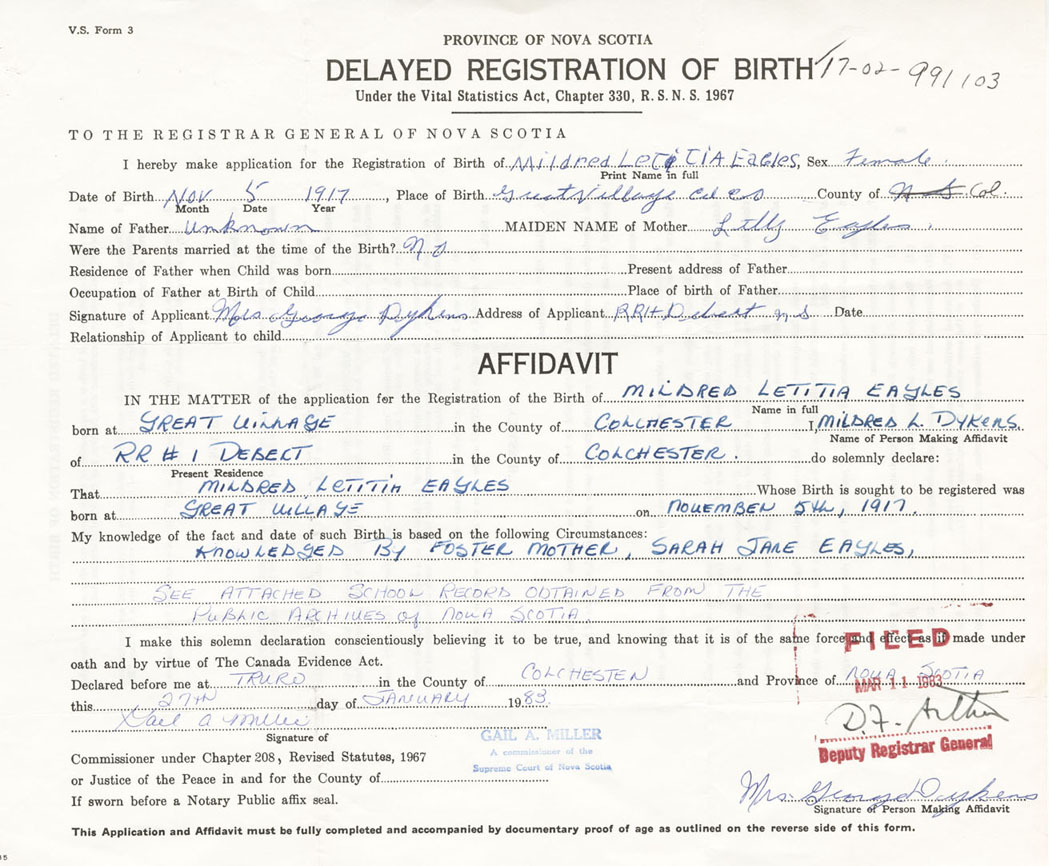 V.S. Form 3
PROVINCE OF NOVA SCOTIA
DELAYED REGISTRATION OF BIRTH 17-02-991103
Under the Vital Statistics Act, Chapter 330, R.S.N.S. 1967
TO THE REGISTRAR GENERAL OF NOVA SCOTIA
I hereby make application for the Registration of Birth of Mildred LetiTiA Eagles, Sex Female.
Print Name in full
Date of Birth Nov 5 1917, Place of Birth Great Village County of N S Col.
Month Date Year
Name of Father Unknown MAIDEN NAME of Mother Lilly Eagles.
Were the Parents married at the time of the Birth? No
Residence of Father when Child was born Present address of Father
Occupation of Father at Birth of Child Place of birth of Father
Signature of Applicant Mrs George Dykens Address of Applicant RR#1 Debert NS Date
Relationship of Applicant to child
AFFIDAVIT
IN THE MATTER of the application for the Registration of the Birth of MILDRED LETITIA EAGLES
Name in full
born at GREAT VILLAGE in the County of COLCHESTER I, MILDRED L. DYKENS.
Name of Person Making Affidavit
of RR # 1 DEBERT in the County of COLCHESTER. do solemnly declare:
Present Residence
That MILDRED LETITIA EAGLES Whose Birth is sought to be registered was
born at GREAT VILLAGE on NOVEMBER 5TH, 1917.
My knowledge of the fact and date of such Birth is based on the following Circumstances:
KNOWLEDGED BY FOSTER MOTHER, SARAH JANE EAGLES,
SEE ATTACHED SCHOOL RECORD OBTAINED FROM THE
PUBLIC ARCHIVES of NOVA SCOTIA.
I make this solemn declaration conscientiously believing it to be true, and knowing that it is of the same force and effect as if made under
oath and by virtue of The Canada Evidence Act.
FILED
Declared before me at TRURO in the County of COLCHESTER and Province of NOVA SCOTIA
MAR 11 1983
this 27TH day of JANUARY 1983.
Gail A Miller
D.F. Arthur
Signature of
GAIL A. MILLER
Deputy Registrar General
Commissioner under Chapter 208, Revised Statutes, 1967
A commissioner of the
Supreme Court of Nova Scotia
or Justice of the Peace in and for the County of
Mrs. George Dykens
If sworn before a Notary Public affix seal.
Signature of Person Making Affidavit
This Application and Affidavit must be fully completed and accompanied by documentary proof of age as outlined on the reverse side of this form.